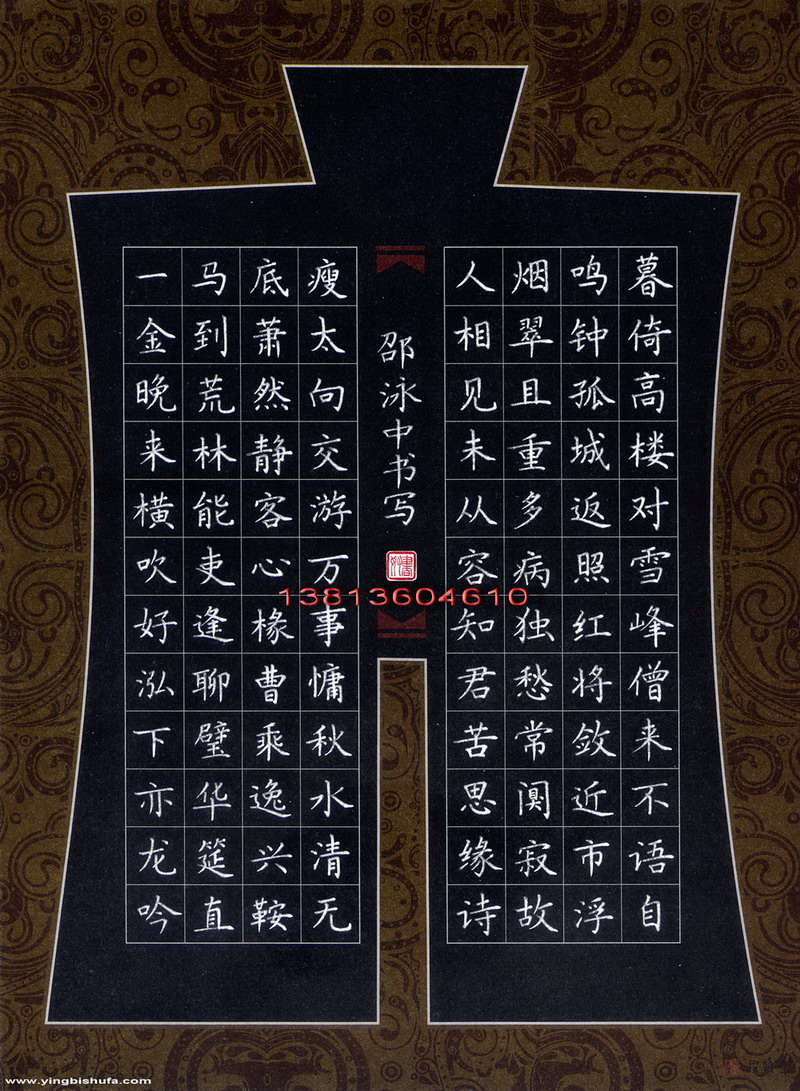 暮倚高楼对雪峰僧来不语自
鸣钟孤城返照红将敛近市浮
烟翠且重多病独愁常阒寂故
人相见未从容知君苦思缘诗
邵泳中书写
13813604610
瘦太向交游万事慵秋水清无
底萧然静客心椽曹乘逸兴鞍
马到荒林能吏逢聊璧华筵直
一金晚来横吹好泓下亦龙吟
www.yingbishufa.com